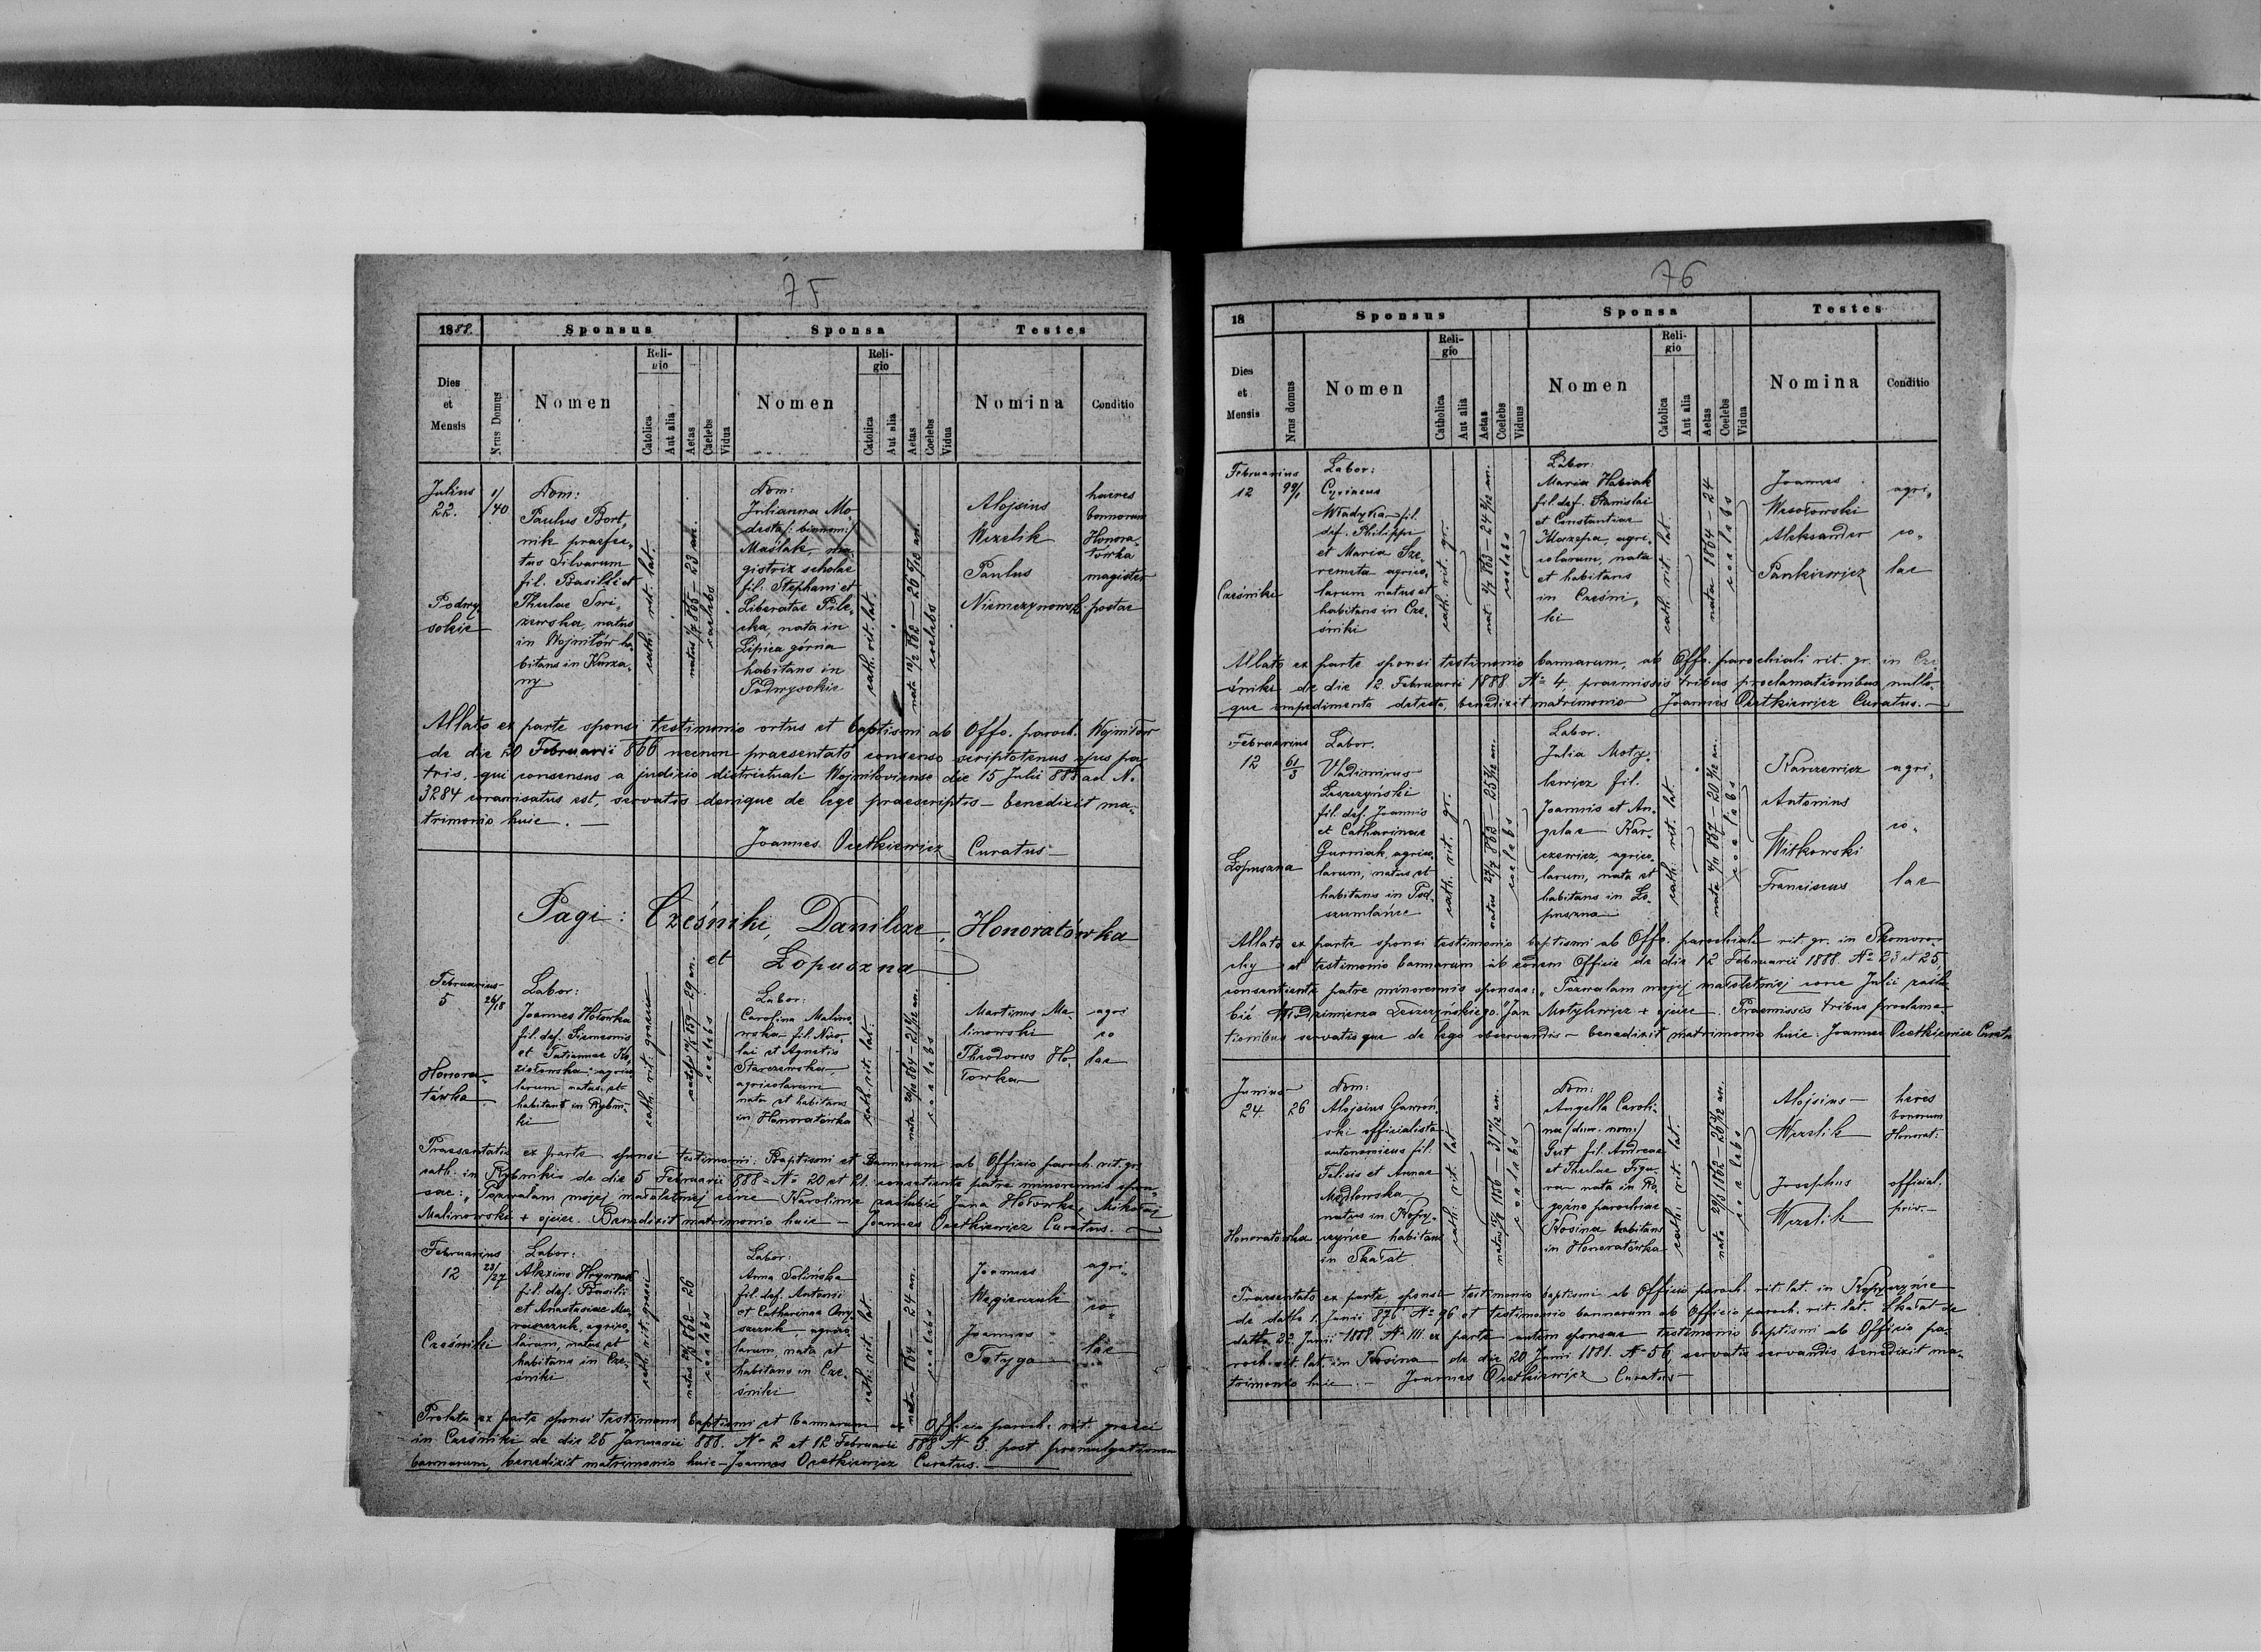 75
1888. Sponsus Sponsa Testes
Dies et Mensis
Nrus Domus
Nomen
Religio
Catolica
Aut alia
Aetas
Caelebs
Vidua
Nomen
Religio
Catolica
Aut alia
Aetas
Coelebs
Vidua
Nomina
Conditio
Julius
22.
1/40
Podwy
sokie
Nom:
Paulus Bort,
nik praefec,
tus Silvarum
fil. Basilii et
Theclae Swi,
żewska, natus
in Wojniłów ha
bitans in Kurza,
ny
cath. rit. lat.
caelebs
Nom:
Julianna Mo
desta /: binom:/
Maślak, ma,
gistrix scholae
fil: Stephani et
Liberatae Pile,
cka, nata in
Lipica górna
habitans in
Podwysokie
cath. rit. lat.
coelebs
Aloysius
Wezelik
Paulus
Niemczynowsk.
haeres
bonnorum
Honora,
tówka
magister
postae
Allato ex parte sponsi testimonio ortus et baptismi ab Offo. paroch. Wojniłów
de die 20 Februarii 866 necnon praesentato consenso scriptotenus ejus pa,
tris, qui consensus a judicio districtuali Wojniloviense die 15 Julii 888 ad N.
3284 coramisatus est, servatis denique de lege praescriptis – benedixit ma,
trimonio huic. —
Joannes Ocetkiewicz Curatus —
Pagi: Cześniki, Danilcze, Honoratówka
et Łopuszna
Februarius
5
26/18
Honora
tówka
Labor:
Joannes Hołowka
fil. def. Simeonis
et Tatiannae Ko
ziołowska, agrico
larum natus et
habitans in Rybni,
ki
cath. rit. graeci
859 – 29 an.
coelebs
Labor:
Carolina Malino,
wska fil. Nico,
lai et Agnetis
Starczewska,
agricolarum
nata et habitans
in Honoratówka
cath. rit. lat.
coelebs
Martinus Ma,
linowski
Theodorus Ho,
łowka
agri
co
lae
Praesentatis ex parte sponsi testimonii: Baptismi et Bannorum ab Officio paroch. rit. gr.
cath. in Rybniki de die 5 Februarii 888 – No 20 et 21. consentiente patre minorennis spon,
sae: „Pozwalam mojej małoletniej córce Karolinie zaślubić Jana Hołowkę, Mikołaj
Malinowski + ojciec. Benedixit matrimonio huic – Joannes Ocetkiewicz Curatus. —
Februarius
12
23/27
Cześniki
Labor:
Alexius Hrynnak
fil. def. Basilii
et Anastasiae Mu,
raszczuk, agrico,
larum, natus et
habitans in Cze,
śniki
cath. rit. graeci
862 – 26
coelebs
Labor:
Anna Solińska
fil. def. Antoni
et Catharinae Ony
szczuk, agrico
larum, nata et
habitans in Cze,
śniki
cath. rit. lat.
nata 864 – 24 an.
coelebs
Joannes
Węgierczuk
Joannes
Totyga
agri,
co
lae
Prolatis ex parte sponsi testimoni: baptismi et bannorum ex Officio paroch. rit. graeci
in Cześniki de die 25 Januarii 888. No 2 et 12 Februarii 888 N 3. post promulgationem
bannorum, benedixit matrimonio huic – Joannes Ocetkiewicz Curatus. —
76
18 Sponsus Sponsa Testes
Dies et Mensis
Nrus domus
Nomen
Religio
Catholica
Aut alia
Aetas
Coelebs
Viduus
Nomen
Religio
Catolica
Aut alia
Aetas
Coelebs
Vidua
Nomina
Conditio
Februarius
12
99/1
Cześniki
Labor:
Cyriacus
Władyka fil.
def. Philippi
et Maria Sze,
remeta agrico,
larum natus et
habitans in Cze,
śniki
cath. rit. gr.
863 – 24
coelebs
Labor:
Maria Habiak
fil. def. Stanislai
et Constantiae
Marzepa, agri,
colarum, nata
et habitans
in Cześni,
ki
cath. rit. lat.
nata 1864 – 24
coelebs
Joannes
Wesołowski
Aleksander
Pankiewicz
agri,
co,
lae
Allato ex parte sponsi testimonio bannorum, ab Offo. parochiali rit. gr. in Cze
śniki de die 12 Februarii 1888 No 4, praemissis tribus proclamationibus, nullo,
que impedimento detecto, benedixit matrimonio Joannes Ocetkiewicz Curatus. —
Februarius
12
61/3
Łopuszna
Labor.
Vladimirus
Leszczyński
fil. def. Joannis
et Catharinae
Gurniak, agrico,
larum, natus et
habitans in Pod,
szumlańce
cath. rit. gr.
coelebs
Labor.
Julia Moty,
lewicz fil.
Joannis et An,
gelae Kar,
czewicz, agrico,
larum, nata et
habitans in Ło,
puszna
cath. rit. lat.
coelebs
Karczewicz
Antonius
Witkowski
Franciscus
agri,
co,
lae
Allato ex parte sponsi testimonio baptismi ab Offo. parochiali rit. gr. in Skomoro,
chy et testimonio bannorum ab eodem Officio de die 12 Februarii 1888. No 23 et 25,
consentiente patre minorennis sponsae: „Pozwalam mojej małoletniej córce Julii zaślu,
bić Włodzimierza Leszczyńskiego." Jan Motylewicz + ojciec. Praemissis tribus proclama,
tionibus servatisque de lege observandis – benedixit matrimonio huic. Joannes Ocetkiewicz Curatus
Junius
24.
26
Honoratówka
Nom:
Aloysius Gawroń,
ski officialista
autonomicus fil:
Felicis et Annae
Modłowska
natus in Kopy,
czyńce habitans
in Skałat
cath. rit. lat.
coelebs
Nom:
Angella Caroli,
na /duor. nom:/
Gut fil. Andreae
et Theclae Figu,
ra nata in Ro,
góżno parochiae
Kosina habitans
in Honoratówka
cath. rit. lat.
coelebs
Aloysius —
Wezelik
Josephus
Wezelik
heres
bonorum
Honorat:
official.
priv. —
Praesentato ex parte sponsi testimonio baptismi ab Officio paroch. rit. lat. in Kopyczyńce
de datto 1. Junii 876 No 96 et testimonio bannorum ab Officio paroch. rit. lat. Skałat de
datto 22 Junii 1888 N. 111. ex parte autem sponsae testimonio baptismi ab Officio pa,
roch. rit. lat. in Kosina de die 20 Junii 1881. No 56, servatis servandis benedixit ma,
trimonio huic. – Joannes Ocetkiewicz Curatus —